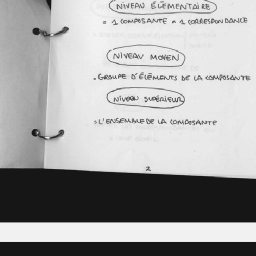 NIVEAU ÉLÉMENTAIRE
= 1 COMPOSANTE = 1 CORRESPONDANCE
NIVEAU MOYEN
. GROUPE D'ÉLÉMENTS DE LA COMPOSANTE
NIVEAU SUPÉRIEUR
= L'ENSEMBLE DE LA COMPOSANTE
2